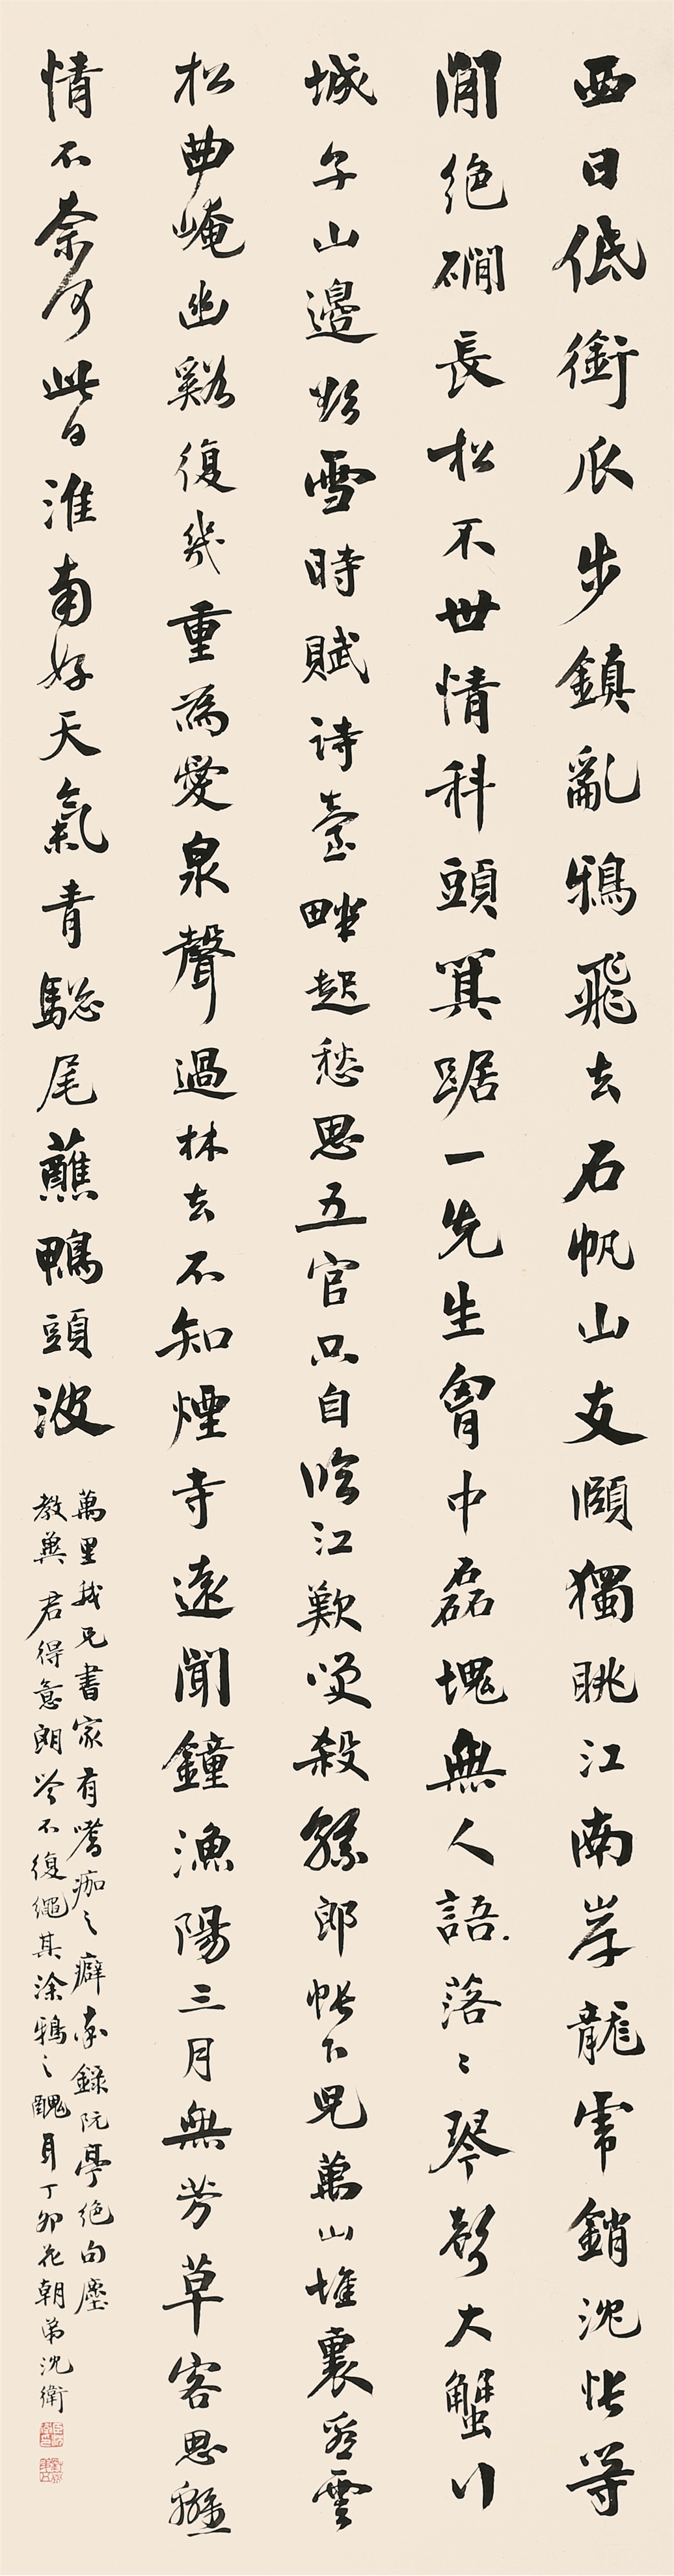 西日低銜瓜步鎮亂鴉飛去石帆山支頤獨眺江南岸龍虎銷沈悵等
閒絕磵長松不世情科頭箕踞一先生胷中磊塊無人語落〻琴聲大蟹行
城子山邊欲雪時賦詩臺畔起愁思五官只自臨江歎咲殺孫郎帳下兒萬山堆裏看雲
松曲崦幽谿復幾重為愛泉聲過林去不知煙寺遠聞鐘漁陽三月無芳草客思離
情不奈何此日淮南好天氣青驄尾蘸鴨頭波
萬里我兄書家有嗜痂之癖索錄阮亭絕句塵
教冀君得意朗吟不復繩其塗鴉之醜耳丁卯花朝弟沈衛